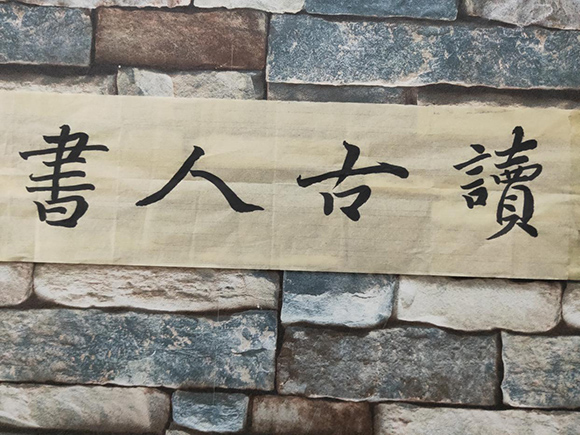 讀古人書